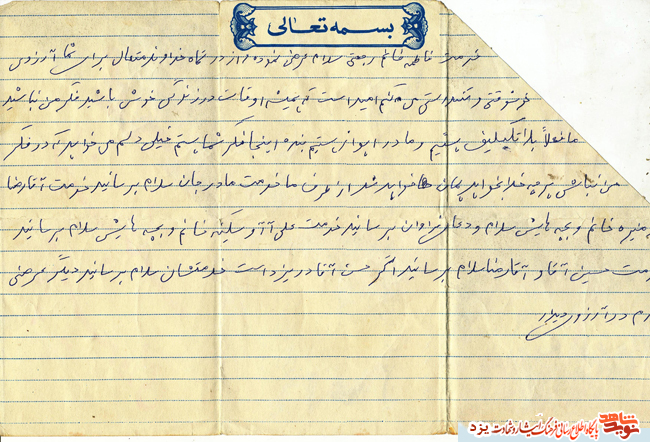 بسمه تعالی
خدمت فاطمه خانم رجبی سلام عرض نموده و از درگاه خداوند متعال برای شما آرزوی
خوشوقتی و تندرستی می‌کنم امید است که همیشه اوقات در زندگی خوش باشید فکر من نباشید
ما فعلاً بلاتکلیف هستیم و ما در اهواز هستیم بنده اینجا فکر شما هستم خیلی دلم می‌خواهد که در فکر
من نباشی هر چه خدا بخواهد همان خواهد شد از طرف ما خدمت مادر جان سلام برسانید خدمت آقا رضا
منیره خانم و بچه هایش سلام و دعا فراوان برسانید خدمت علی آقا و سکینه خانم و بچه هایش سلام برسانید
مت حسین آقا و آقا رضا سلام برسانید اگر حسن آقا در یزد است خدمتشان سلام برسانید دیگر عرضی
رم در آرزوی دیدار
نوید شاهد
پایگاه اطلاع رسانی فرهنگ ایثار و شهادت یزد